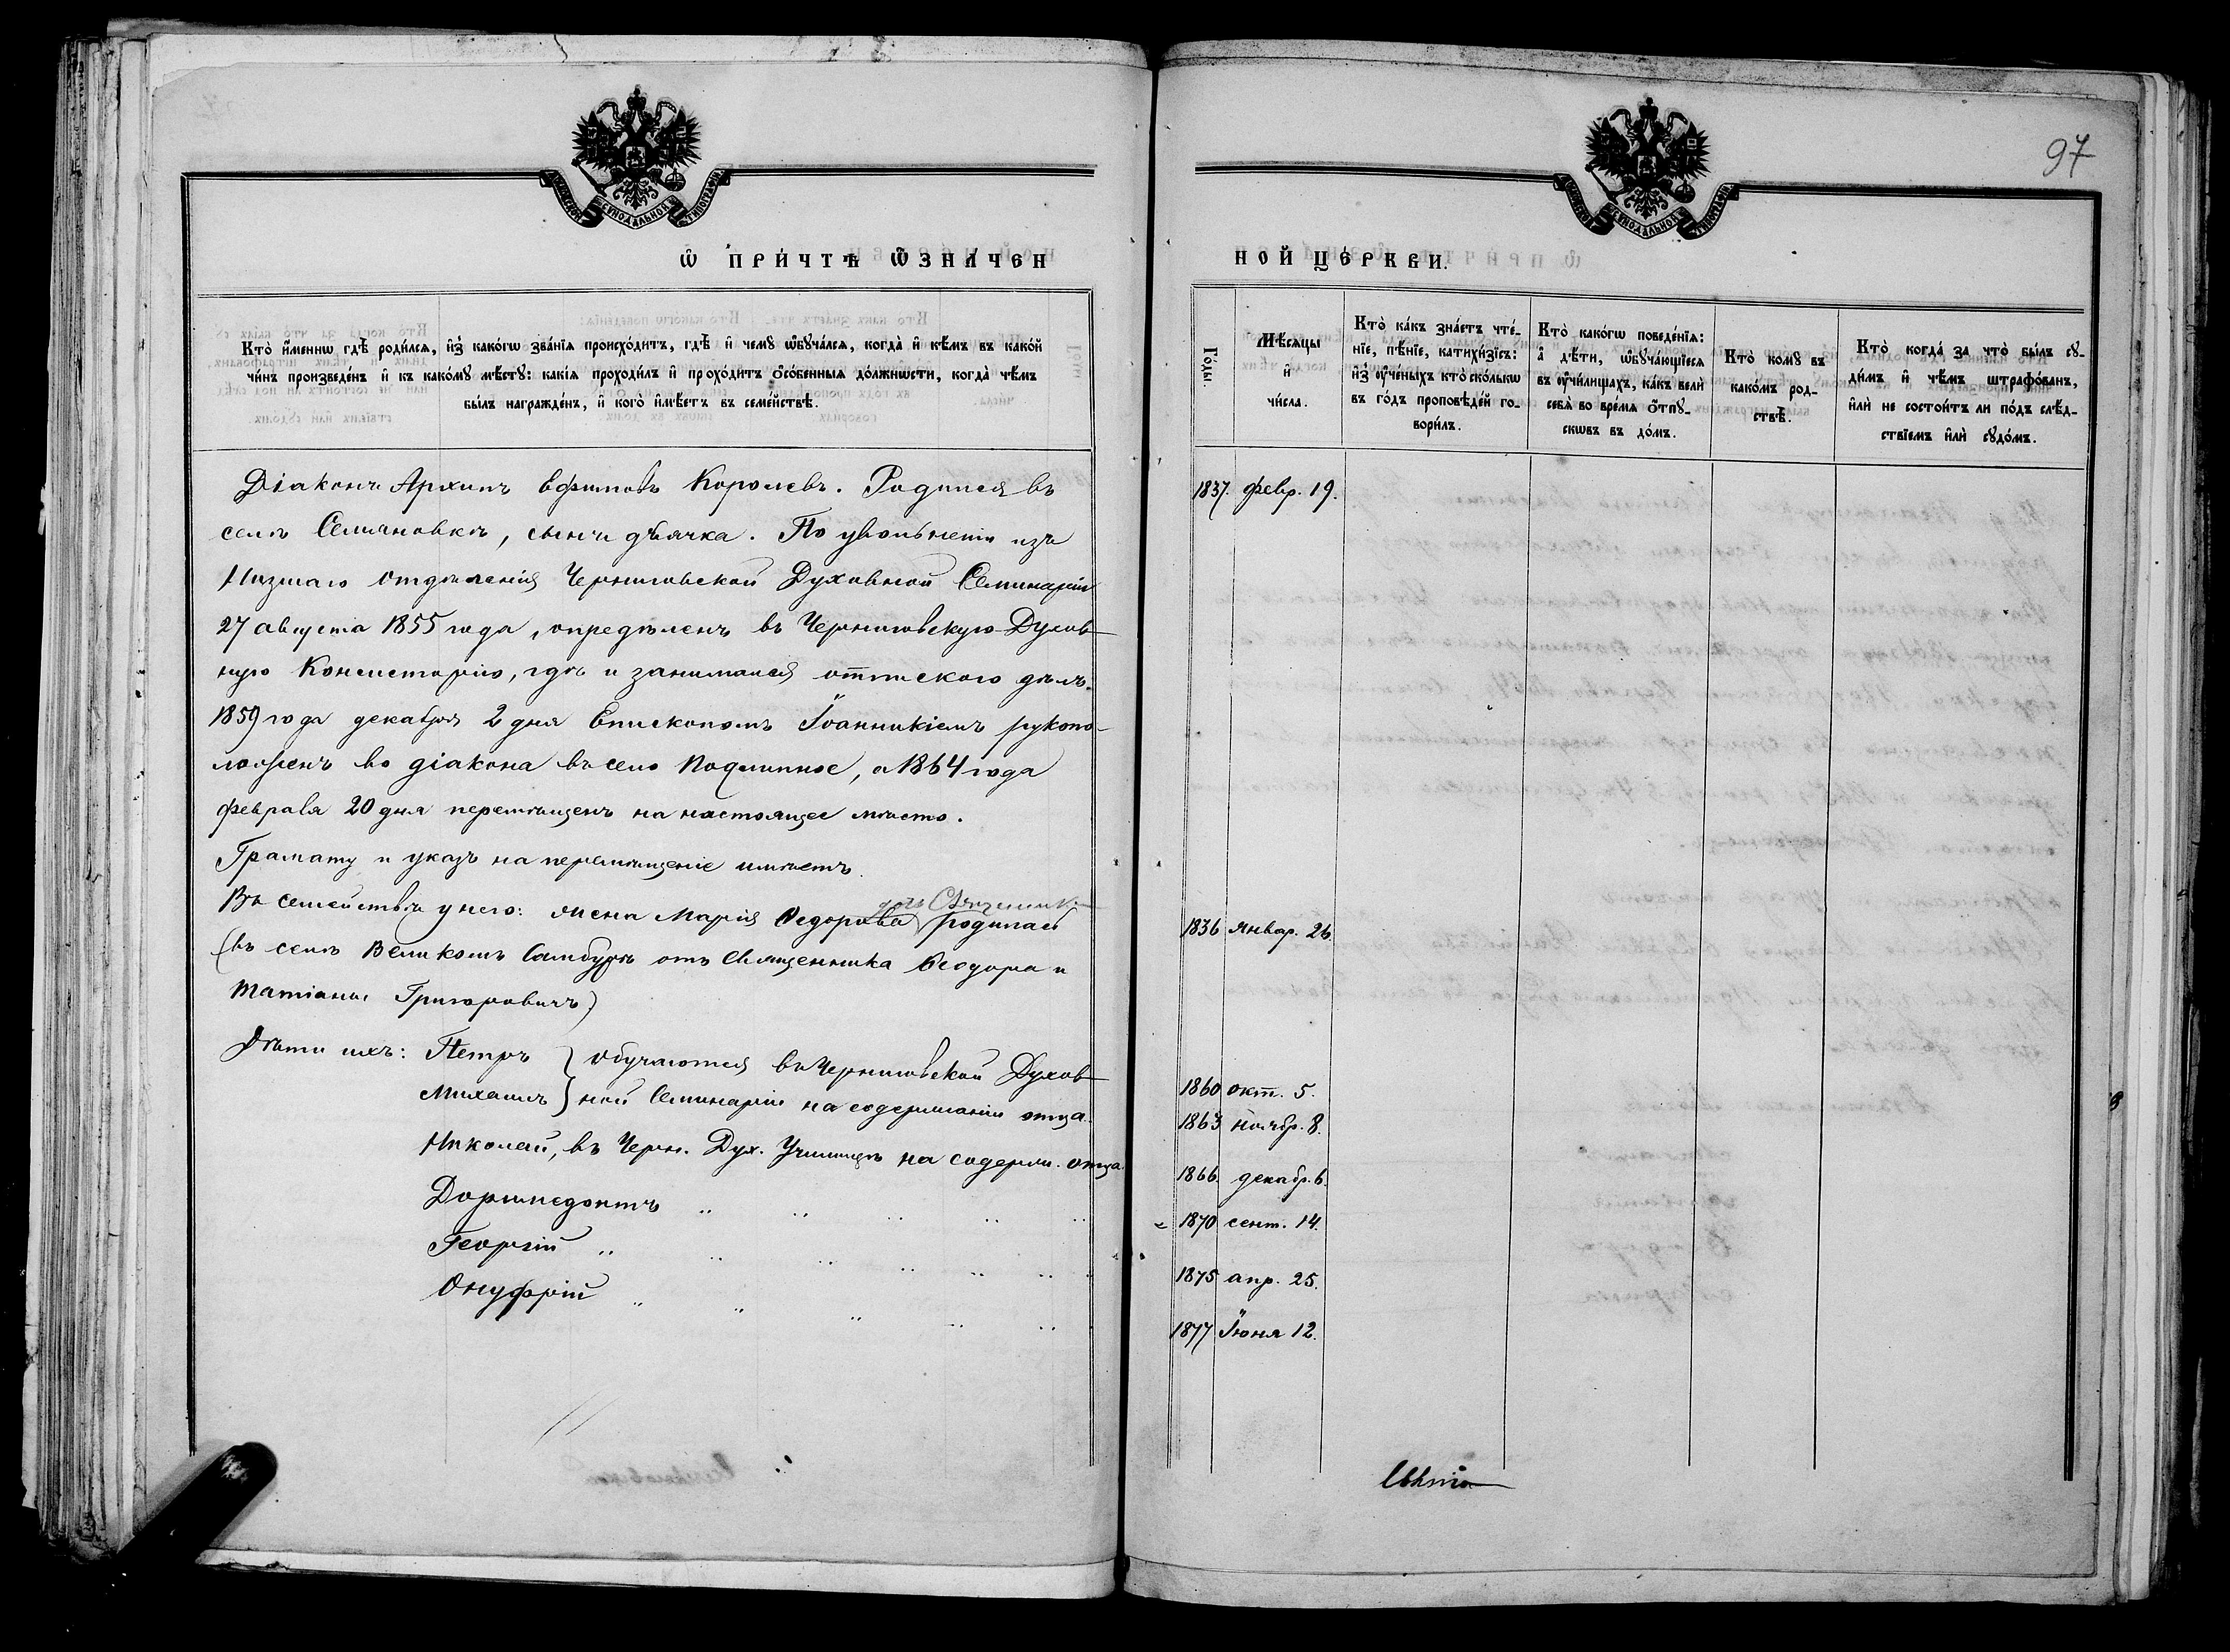 97
Ѿ ПРИ́ЧТѢ Ѿ̀ЗНАЧЕН
НОЙ ЦЕ́РКВИ.
Кто̀ и́менно гдѣ̀ роди́лсѧ, и҆з̾ како́гѡ зва́нїѧ происхо́дитъ, гдѣ̀ и҆ чемꙋ̀ ѡ҆бꙋча́лсѧ, когда̀ и҆ кѣ́мъ въ како́й
чи́нъ произведе́нъ и҆ къ како́мꙋ мѣ́стꙋ: какі́ѧ проходи́лъ и҆ прохо́дитъ ѻ҆со́бенныѧ до́лжнѡсти, когда̀ чѣ́мъ
бы́лъ награжде́нъ, и҆ кого̀ и҆мѣ́етъ въ семе́йствѣ.
Го́ды
Мѣ́сѧцы
и҆
чи́сла.
Кто̀ ка́къ зна́етъ чте́-
нїе, пѣ́нїе, катихи́зїсъ:
и҆з̾ ᲂу҆че́ныхъ кто̀ ско́лькѡ
въ го́дъ проповѣ́дей го-
вори́лъ.
Кто̀ како́гѡ поведе́нїѧ:
а҆ дѣ́ти, ѡ҆бꙋча́ющїесѧ
въ ᲂу҆чи́лищахъ, ка́къ велѝ
себѧ̀ во вре́мѧ ѻ҆́тпꙋ-
скѡвъ въ до́мъ.
Кто̀ комꙋ̀ въ
како́мъ род-
ствѣ̀.
Кто̀ когда́ за что̀ бы́лъ сꙋ-
ди́мъ и҆ чѣ́мъ штрафо́ванъ,
и҆лѝ не состои́тъ ли по́дъ слѣ́д-
ствїемъ и҆лѝ сꙋдо́мъ.
Діаконъ Архипъ Ефимовъ Королевъ. Родился въ
селѣ Семяновкѣ, сынъ дьячка. По увольненіи изъ
Низшаго отдѣленія Черниговской Духовной Семинаріи
27 августа 1855 года, опредѣленъ въ Черниговскую Духов-
ную Консисторію, гдѣ и занимался отпискою дѣлъ.
1859 года декабря 2 дня Епископомъ Іоанникіемъ рукопо-
ложенъ во діакона въ село Подлипное, а 1864 года
февраля 20 дня перемѣщенъ на настоящее мѣсто.
Грамату и указъ на перемѣщеніе имѣетъ.
Въ семействѣ у него: жена Марія Ѳедорова родилась
(въ селѣ Великомъ Самбурѣ отъ Священника Ѳеодора и
Татіаны Григоровичъ)
Дѣти ихъ: Петръ } обучаются въ Черниговской Духов-
Михаилъ } ной Семинаріи на содержаніи отца.
Николай, въ Черн. Дух. Училищѣ на содерж. отца.
Доримедонтъ " " " " "
Георгій " " " " " "
Онуфрій " " " " "
1837. февр. 19.
1836 январ. 26.
1860 окт. 5.
1863 ноябр. 8.
1866 декабр. 6.
1870 сент. 14.
1875 апр. 25.
1877 Іюня 12.